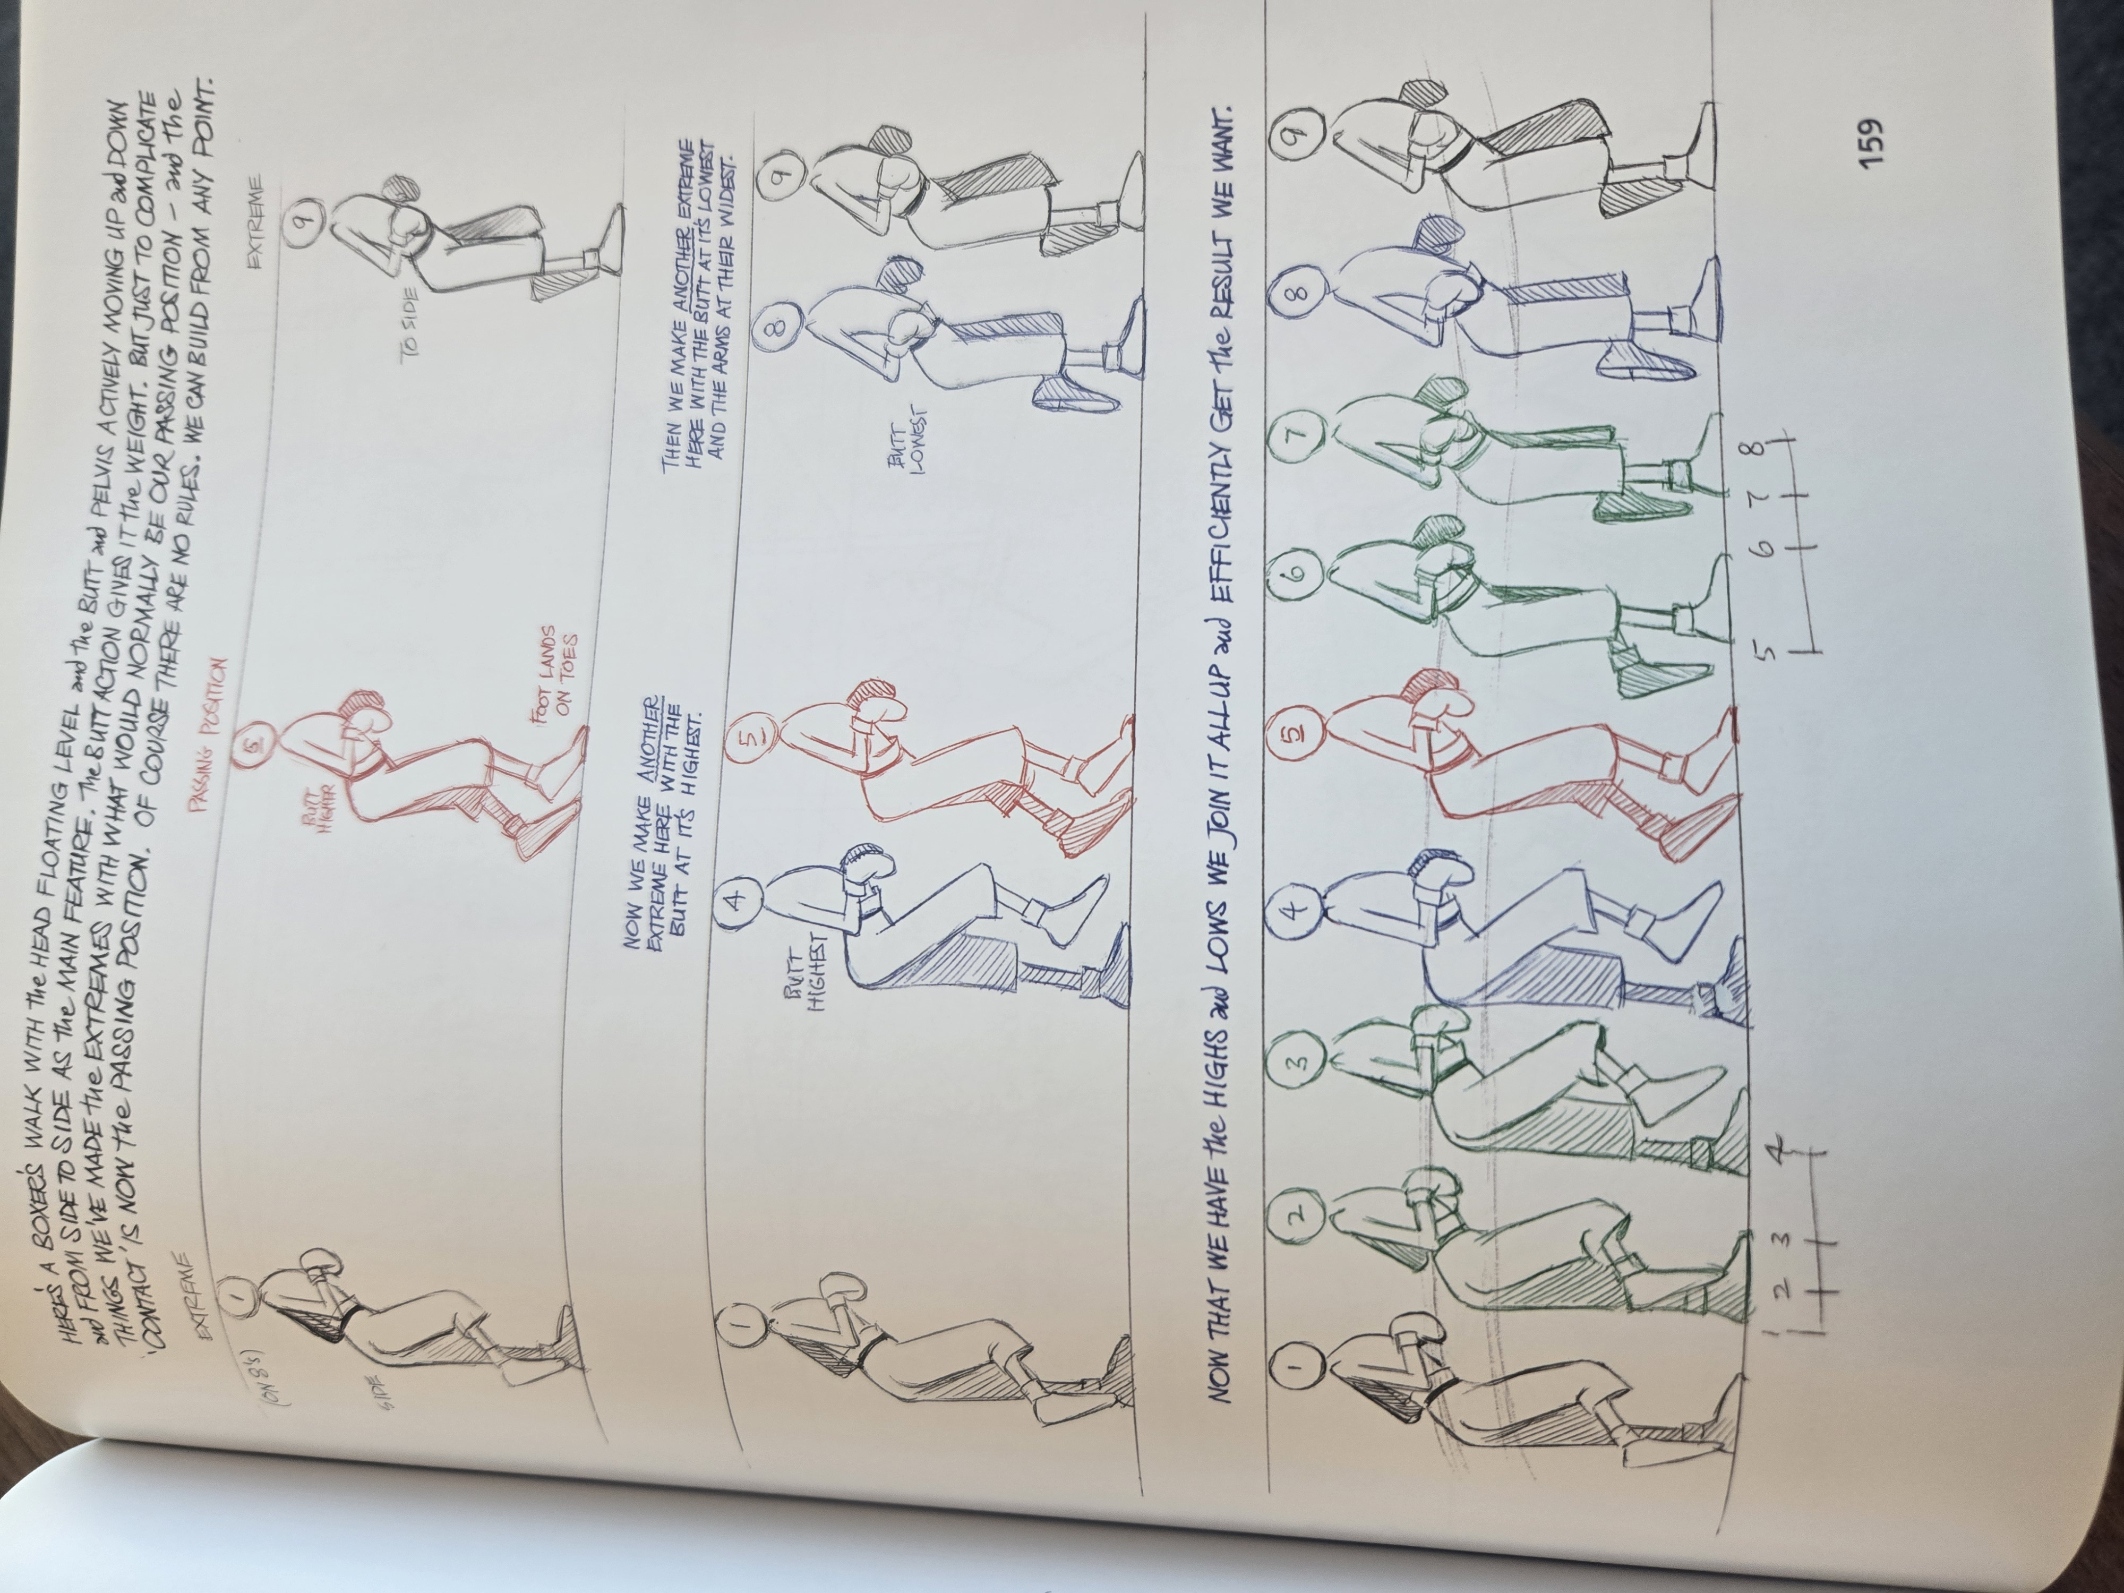 HERE'S A BOXER'S WALK WITH the HEAD FLOATING LEVEL and the BUTT and PELVIS ACTIVELY MOVING UP and DOWN
and FROM SIDE TO SIDE AS the MAIN FEATURE. The BUTT ACTION GIVES IT the WEIGHT. BUT JUST TO COMPLICATE
THINGS WE'VE MADE the EXTREMES WITH WHAT WOULD NORMALLY BE OUR PASSING POSITION - and the
'CONTACT' IS NOW the PASSING POSITION. OF COURSE THERE ARE NO RULES. WE CAN BUILD FROM ANY POINT.
EXTREME
PASSING POSITION
EXTREME
(ON 8's)
1
5
9
BUTT
HIGHER
SIDE
TO SIDE
FOOT LANDS
ON TOES
NOW WE MAKE ANOTHER
EXTREME HERE WITH THE
BUTT AT IT'S HIGHEST.
THEN WE MAKE ANOTHER EXTREME
HERE WITH THE BUTT AT IT'S LOWEST
AND THE ARMS AT THEIR WIDEST.
1
4
5
8
9
BUTT
HIGHEST
BUTT
LOWEST
NOW THAT WE HAVE the HIGHS and LOWS WE JOIN IT ALL UP and EFFICIENTLY GET the RESULT WE WANT.
1 2 3 4 5 6 7 8 9
1 2 3 4
5 6 7 8
159